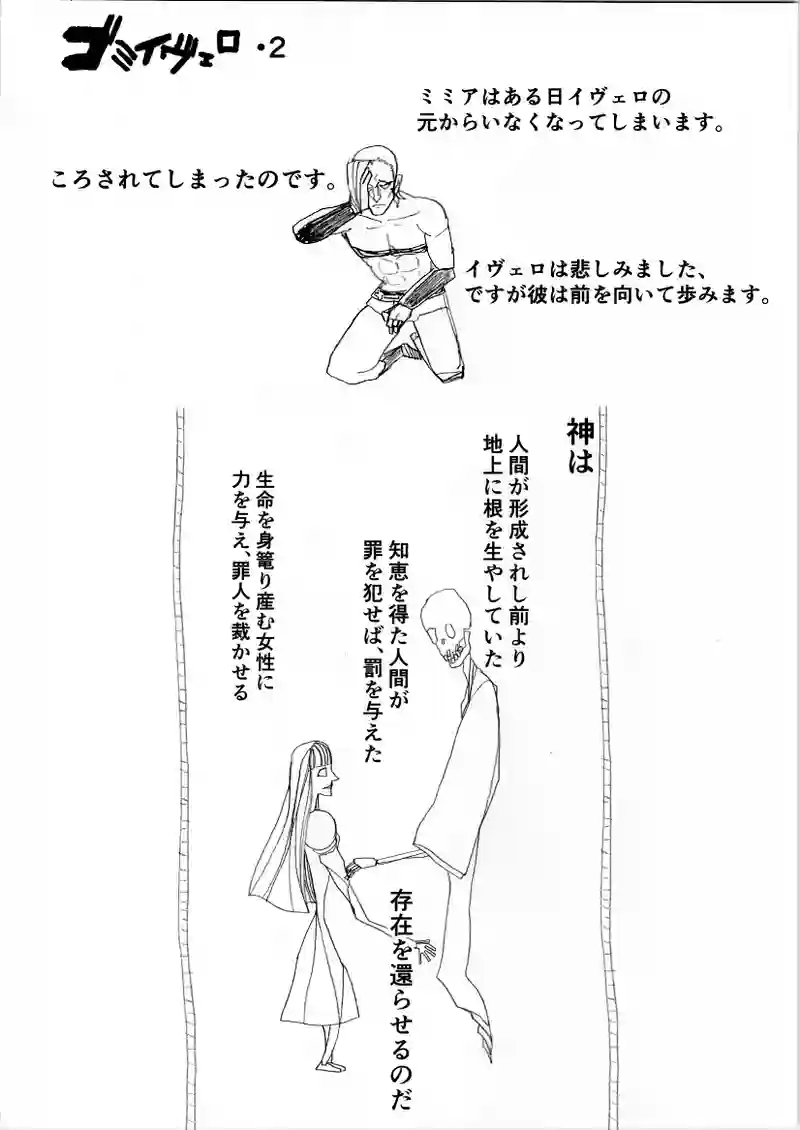 ゴミイヴェロ・2
ミミアはある日イヴェロの
元からいなくなってしまいます。
ころされてしまったのです。
イヴェロは悲しみました、
ですが彼は前を向いて歩みます。
神は
人間が形成されし前より
地上に根を生やしていた
知恵を得た人間が
罪を犯せば、罰を与えた
生命を身篭り産む女性に
力を与え、罪人を裁かせる
存在を還らせるのだ